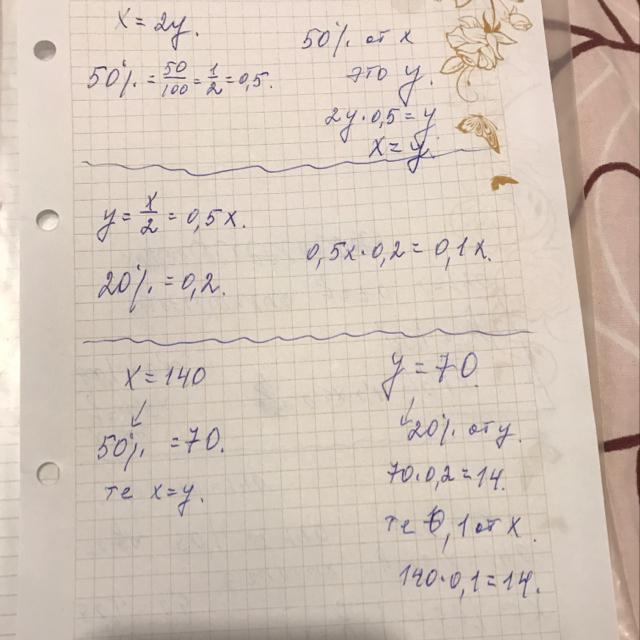 x = 2y.
50% = 50/100 = 1/2 = 0,5.
50% от x
это y.
2y·0,5 = y
x = y.
y = x/2 = 0,5x.
20% = 0,2.
0,5x·0,2 = 0,1x.
x = 140
50% = 70.
те x = y.
y = 70
20% от y.
70·0,2 = 14.
те 0,1 от x.
140·0,1 = 14.